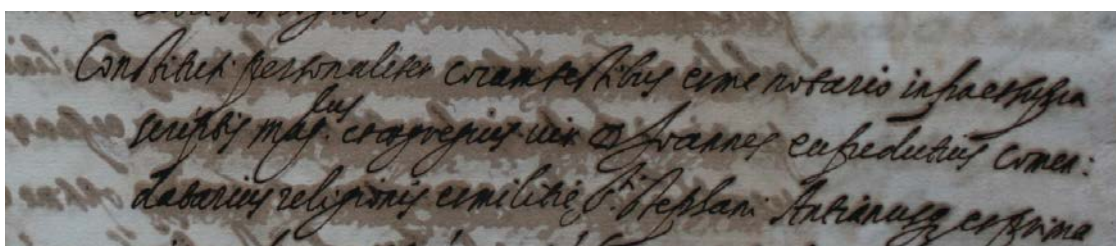 Constituti personaliter coram testibus et me notario infra et supra
scriptis mag.cus et egregius vir D Joannes eufredutius comen:
datarius religionis et militie S.ti Stephani Antianusq et prima